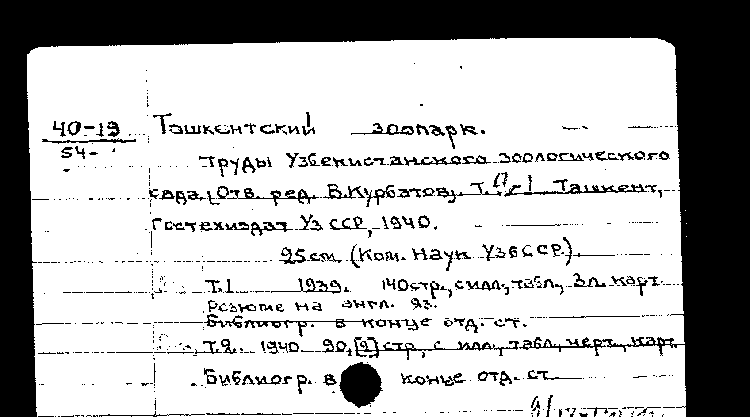 40-19 Ташкентский зоопарк.
54-
Труды Узбекистанского зоологического
сада. [Отв. ред. В. Курбатов]. Т. Ташкент,
Гостехиздат УзССР, 1940.
25 см. (Ком. Наук УзбССР.).
Т.1 1939. 140 стр., с илл., табл., 3 л. карт
Резюме на англ. яз.
Библиогр. в конце отд. ст.
Т.2. 1940 90, [2] стр, с илл., табл., черт., карт.
Библиогр. в конце отд. ст